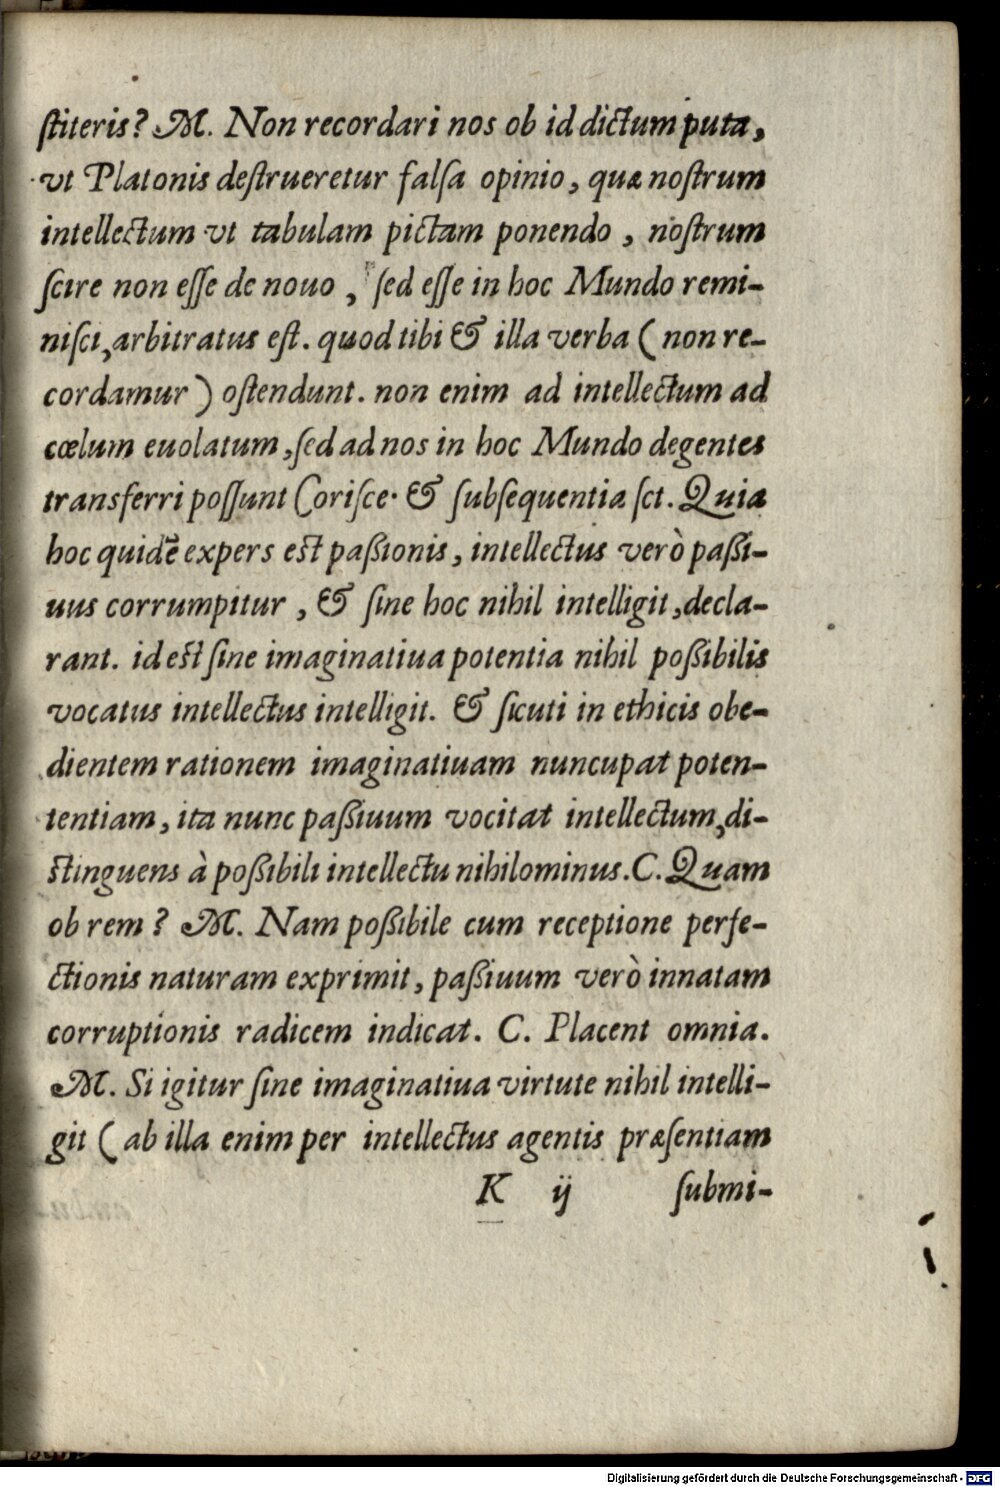 ſtiteris? M. Non recordari nos ob id dictum puta,
vt Platonis deſtrueretur falſa opinio, quæ noſtrum
intellectum vt tabulam pictam ponendo, noſtrum
ſcire non eſſe de nouo, ſed eſſe in hoc Mundo remi-
niſci, arbitratus eſt. quod tibi & illa verba (non re-
cordamur) oſtendunt. non enim ad intellectum ad
cœlum euolatum, ſed ad nos in hoc Mundo degentes
transferri poſſunt Coriſce. & ſubſequentia ſct. Quia
hoc quidē expers eſt paßionis, intellectus verò paßi-
uus corrumpitur, & ſine hoc nihil intelligit, decla-
rant. id eſt ſine imaginatiua potentia nihil poßibilis
vocatus intellectus intelligit. & ſicuti in ethicis obe-
dientem rationem imaginatiuam nuncupat poten-
tentiam, ita nunc paßiuum vocitat intellectum, di-
ſtinguens à poßibili intellectu nihilominus. C. Quam
ob rem? M. Nam poßibile cum receptione perfe-
ctionis naturam exprimit, paßiuum verò innatam
corruptionis radicem indicat. C. Placent omnia.
M. Si igitur ſine imaginatiua virtute nihil intelli-
git (ab illa enim per intellectus agentis præſentiam
K ij ſubmi-
Digitalisierung gefördert durch die Deutsche Forschungsgemeinschaft - DFG